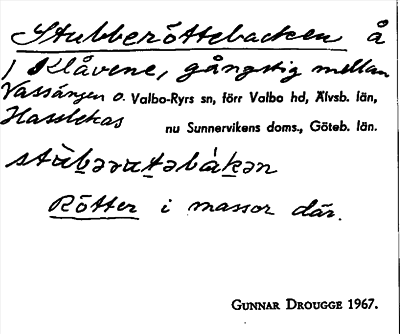 Stubberöttebacken å
1 Klåvene, gångstig mellan
Vassängen o. Valbo-Ryrs sn, förr Valbo hd, Älvsb. län,
Hasslekas nu Sunnervikens doms., Göteb. län.
Rötter i massor där.
GUNNAR DROUGGE 1967.